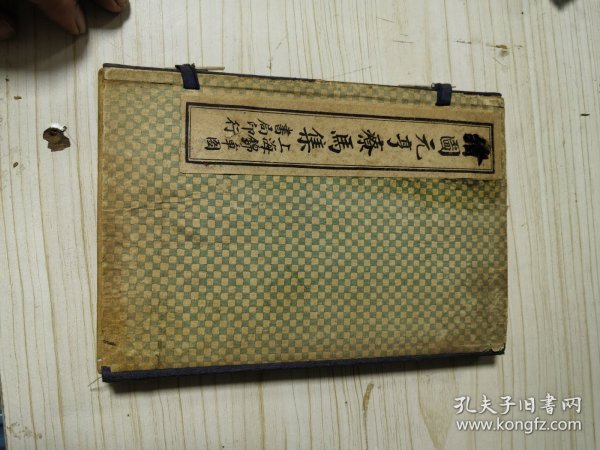 繪圖元亨療馬集
上海錦章圖
書局印行
孔夫子旧書网
www.kongfz.com